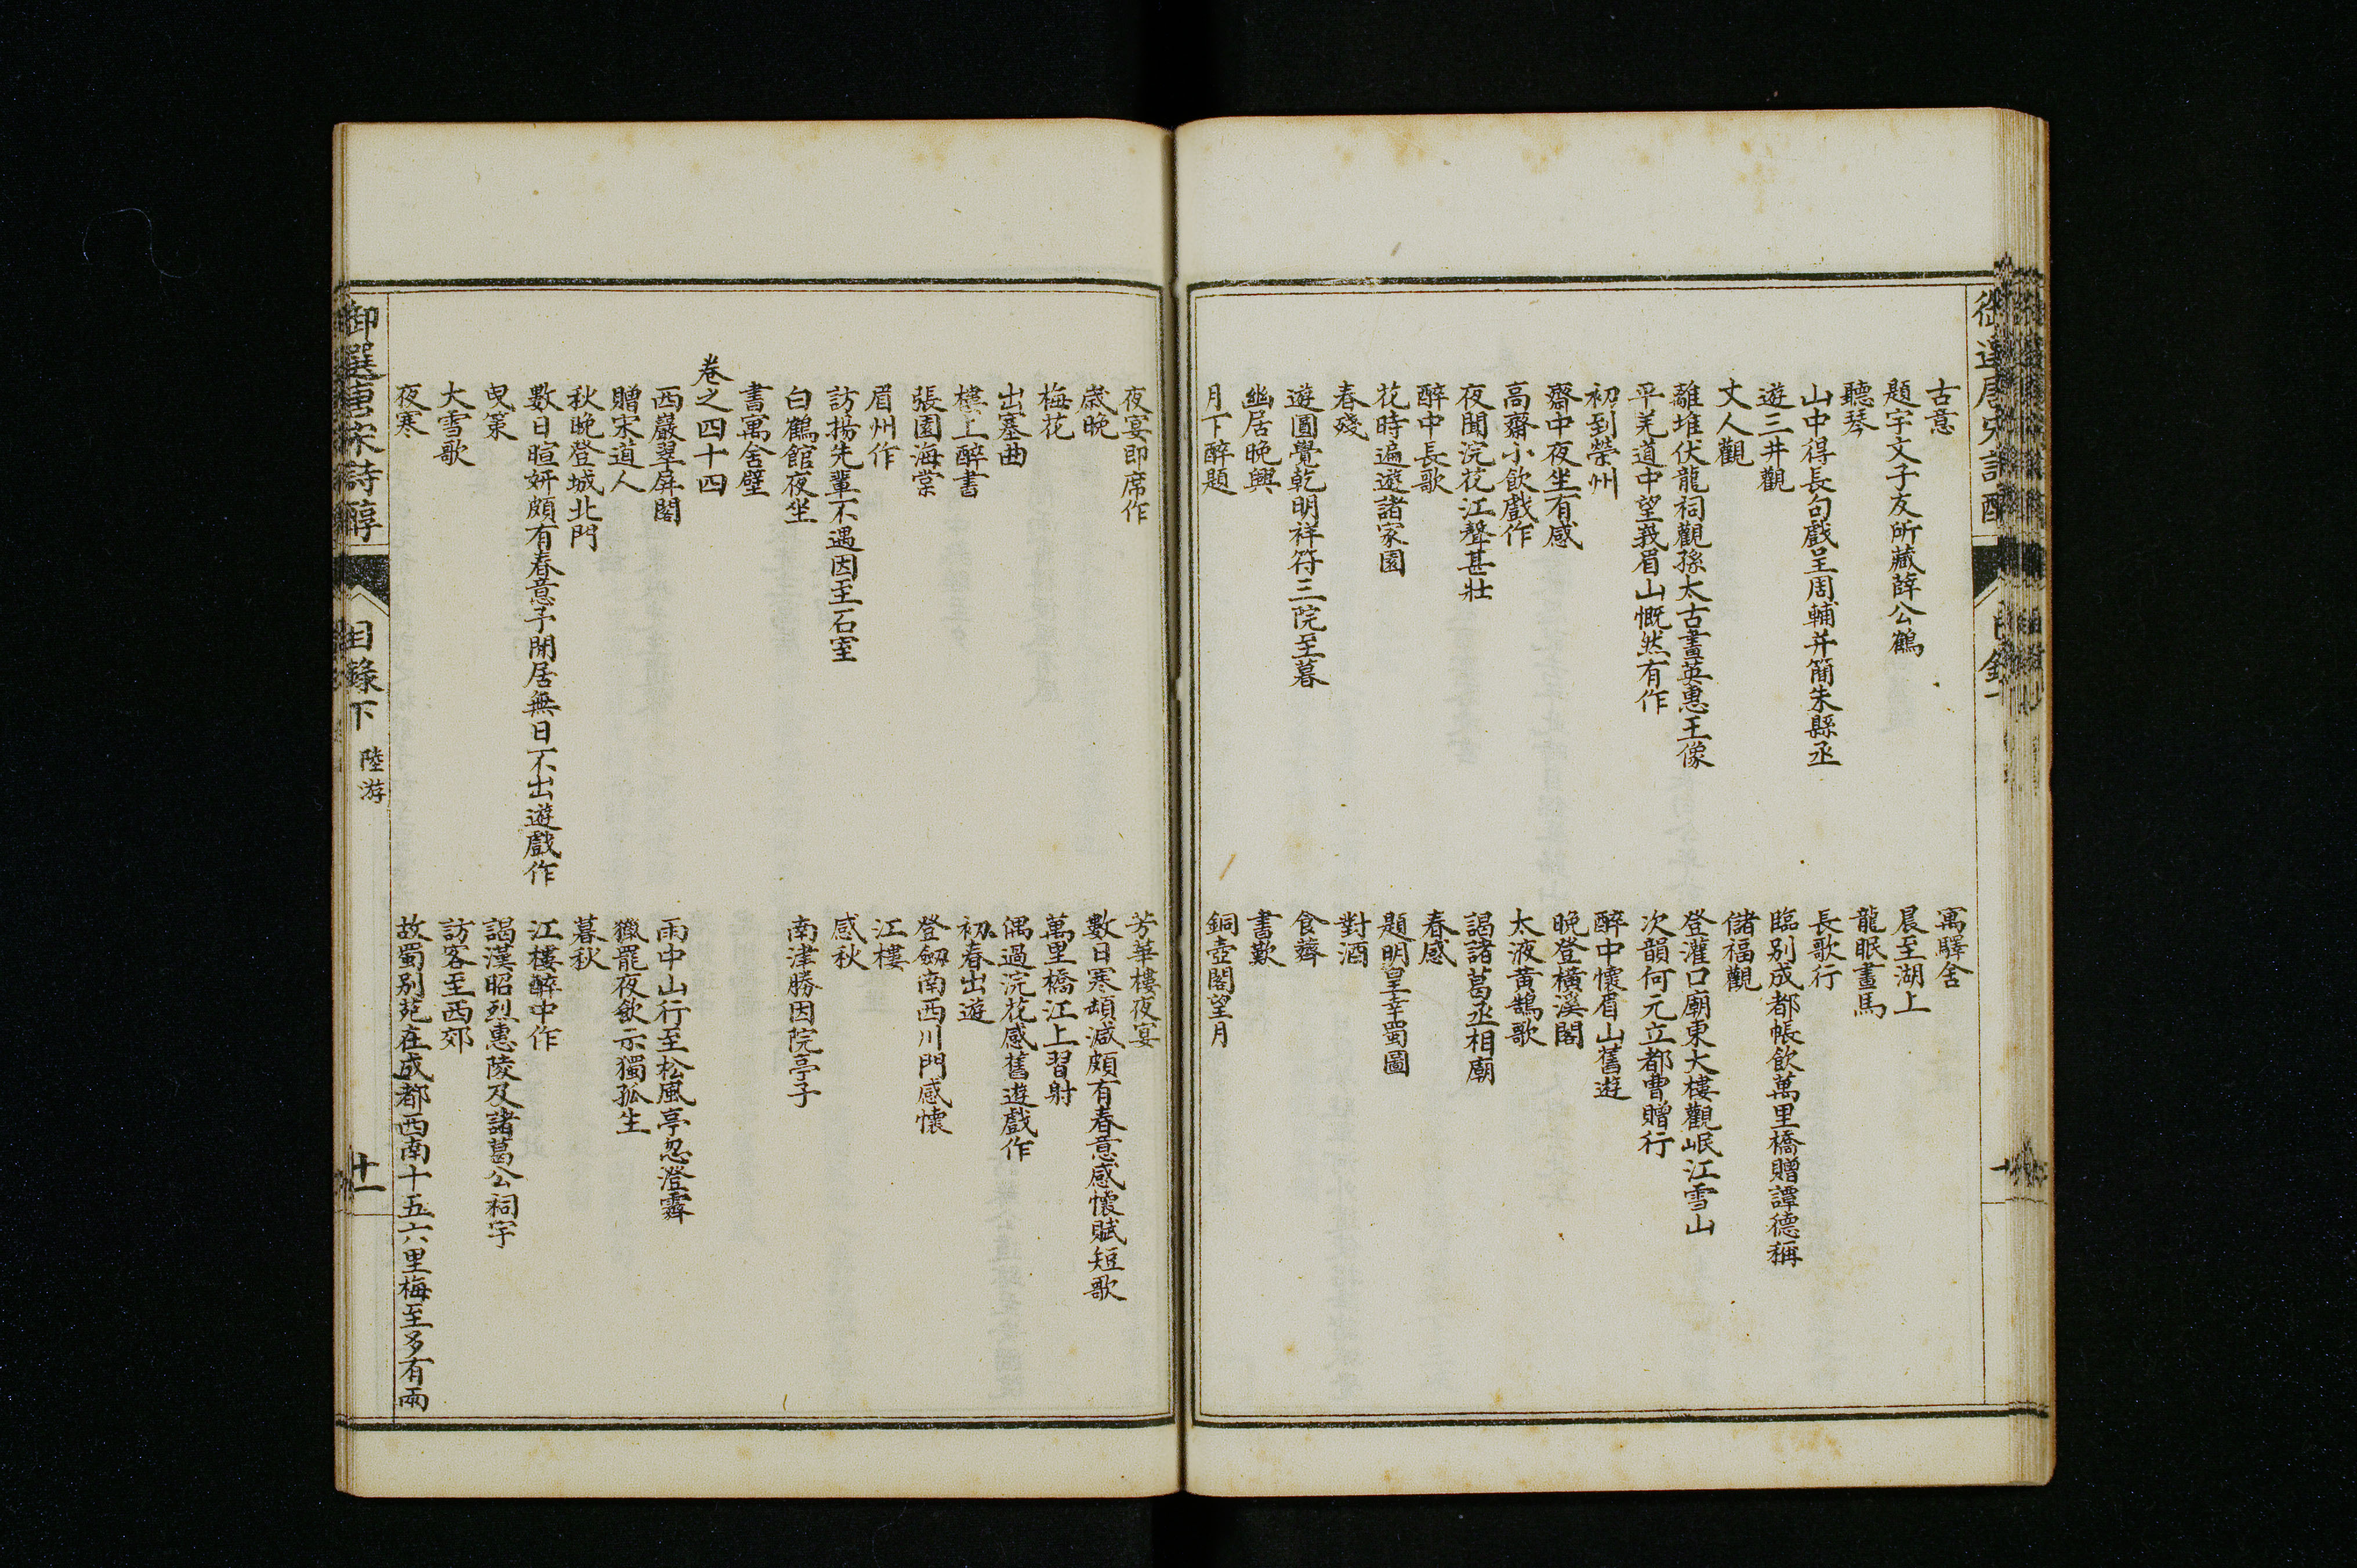 古意
寓驛舍
題宇文子友所藏薛公鶴
晨至湖上
聽琴
龍眠畫馬
山中得長句戲呈周輔并簡朱縣丞
長歌行
遊三井觀
臨别成都帳飲萬里橋贈譚德稱
丈人觀
儲福觀
離堆伏龍祠觀孫太古畫英惠王像
登灌口廟東大樓觀岷江雪山
平羌道中望峩眉山慨然有作
次韻何元立都曹贈行
初到榮州
醉中懷眉山舊遊
齋中夜坐有感
晚登橫溪閣
高齋小飲戲作
太液黃鵠歌
夜聞浣花江聲甚壯
謁諸葛丞相廟
醉中長歌
春感
花時遍遊諸家園
題明皇幸蜀圖
春殘
對酒
遊圓覺乾明祥符三院至暮
食薺
幽居晚興
書歎
月下醉題
銅壺閣望月
夜宴即席作
芳華樓夜宴
歲晚
數日寒頓減頗有春意感懷賦短歌
梅花
萬里橋江上習射
出塞曲
偶過浣花感舊遊戲作
樓上醉書
初春出遊
張園海棠
登劒南西川門感懷
眉州作
江樓
訪揚先輩不遇因至石室
感秋
白鶴館夜坐
南津勝因院亭子
書寓舍壁
卷之四十四
西巖翠屏閣
雨中山行至松風亭忽澄霽
贈宋道人
獵罷夜飲示獨孤生
秋晚登城北門
暮秋
數日暄妍頗有春意予閒居無日不出遊戲作
江樓醉中作
曳策
謁漢昭烈惠陵及諸葛公祠宇
大雪歌
訪客至西郊
夜寒
故蜀别苑在成都西南十五六里梅至多有兩
御選唐宋詩醇 目錄下 陸游 十一